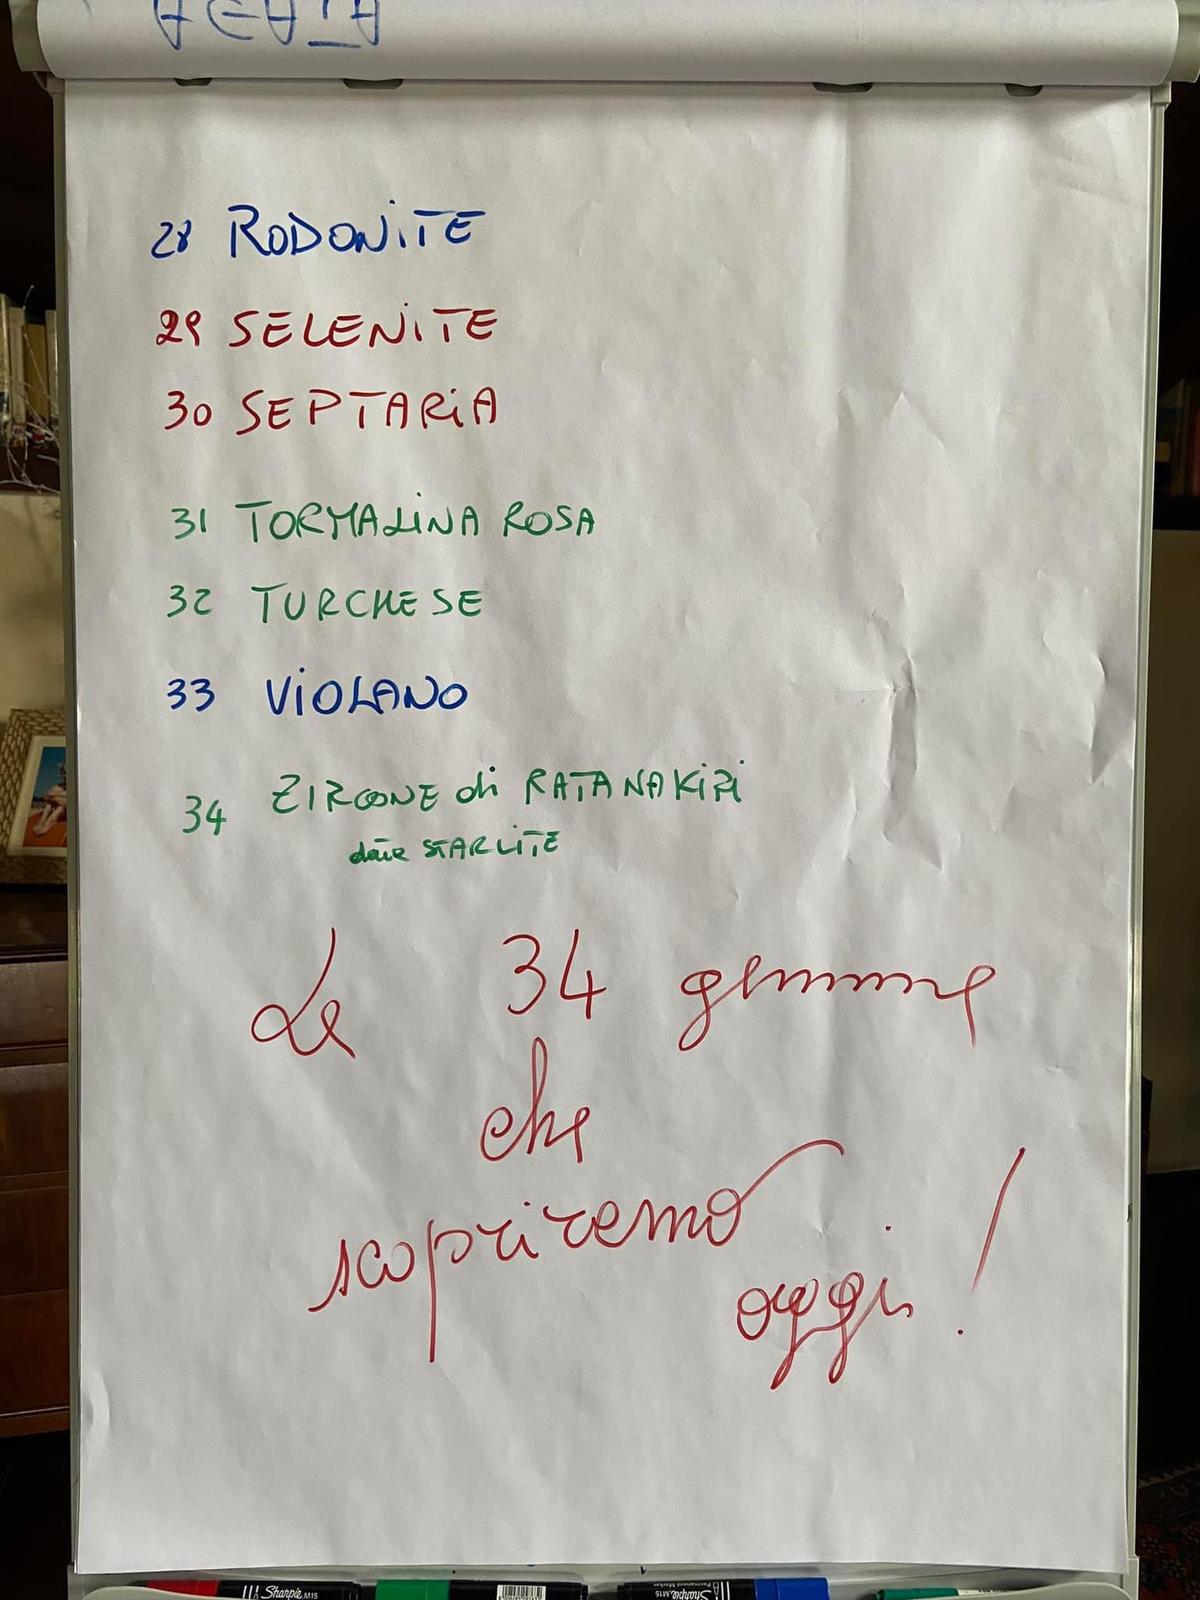 28 RODONITE
29 SELENITE
30 SEPTARIA
31 TORMALINA ROSA
32 TURCHESE
33 VIOLANO
34 ZIRCONE di RATANAKIRI
STARLITE
Le 34 gemme
che
scopriremo
oggi!
Sharpie M15
Sharpie M15
Permanent Marker